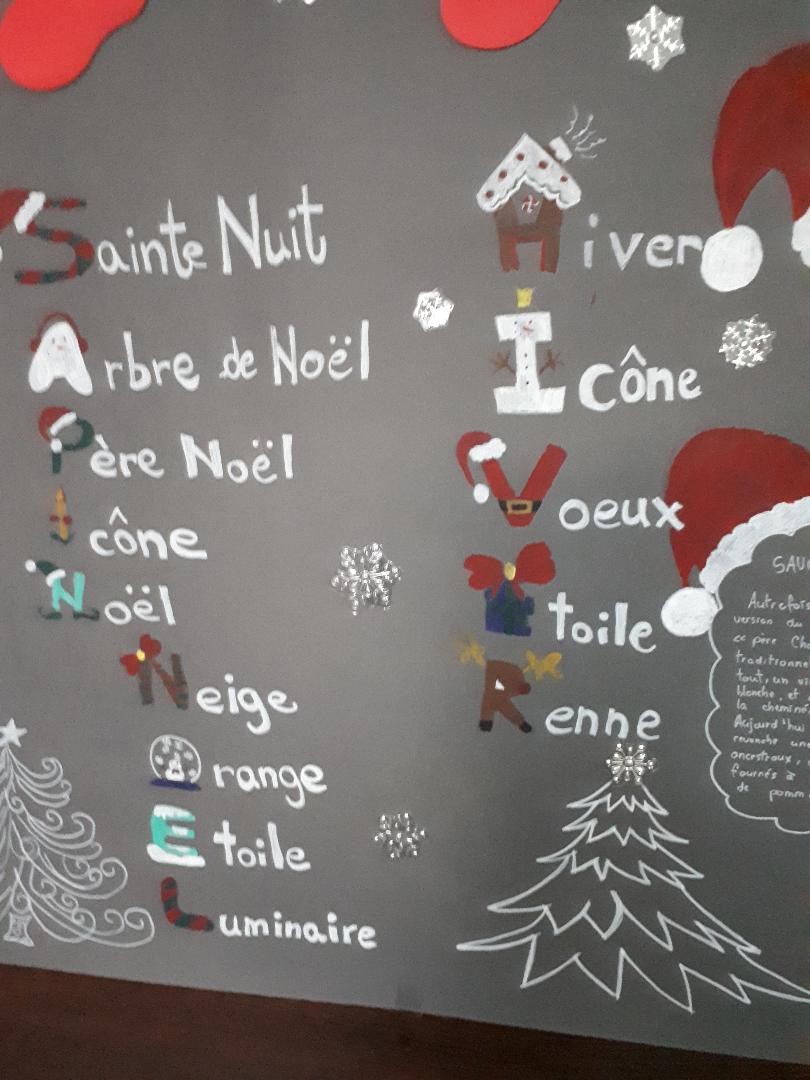 Sainte Nuit
Arbre de Noël
Père Noël
icône
Noël
Neige
Orange
Etoile
Luminaire
Hiver
Icône
Voeux
Etoile
Renne
SAV
Autrefois
version du
ce père Cha
traditionne
tout, un vi
blanche, et
la cheminé
Aujourd'hui
revanche un
ancestraux,
fournés à
de pomm